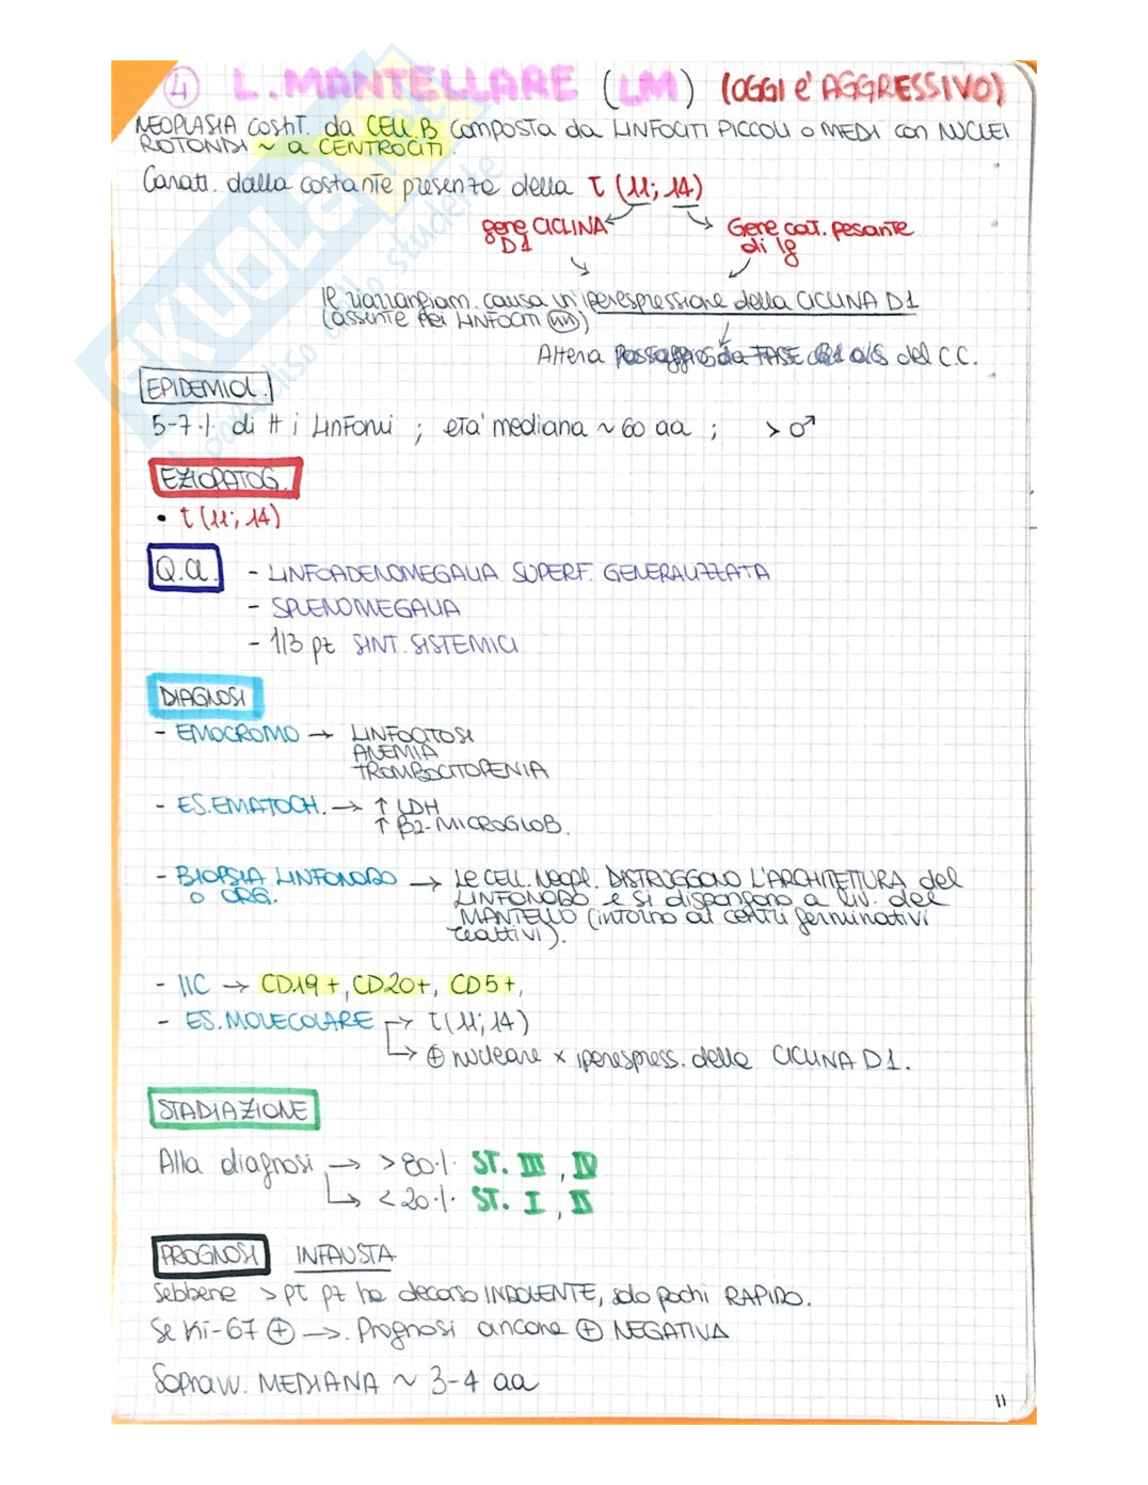 ④ L. MANTELLARE (LM) (OGGI è AGGRESSIVO)
NEOPLASIA costit. da CELL. B composta da LINFOCITI PICCOLI o MEDI con NUCLEI
ROTONDI ~ a CENTROCITI.
Caratt. dalla costante presenza della t (11; 14)
gene CICLINA D1
Gene cat. pesante di Ig
Il riarrangiam. causa un'iperespressione della CICLINA D1
(assente nei LINFOCITI nn)
Altera Passaggio da FASE G1 a S del C.C.
EPIDEMIOL.
5-7·/· di tt i Linfomi ; età mediana ~ 60 aa ; > ♂
EZIOPATOG.
• t (11; 14)
Q.Cl. - LINFOADENOMEGALIA SUPERF. GENERALIZZATA
- SPLENOMEGALIA
- 1/3 pz SINT. SISTEMICI
DIAGNOSI
- EMOCROMO → LINFOCITOSI
ANEMIA
TROMBOCITOPENIA
- ES. EMATOCH. → ↑ LDH
↑ β2-MICROGLOB.
- BIOPSIA LINFONODO → Le CELL. Neopl. DISTRUGGONO L'ARCHITETTURA del
o ORG. LINFONODO e si dispongono a liv. del
MANTELLO (intorno ai centri germinativi
reattivi).
- IIC → CD19+, CD20+, CD5+,
- ES. MOLECOLARE → t(11; 14)
→ ⊕ nucleare x iperespress. della CICLINA D1.
STADIAZIONE
Alla diagnosi → > 80·/· ST. III, IV
→ < 20·/· ST. I, II
PROGNOSI INFAUSTA
Sebbene > pt pz ha decorso INDOLENTE, solo pochi RAPIDO.
Se Ki-67 ⊕ → Prognosi ancora ⊕ NEGATIVA
Sopravv. MEDIANA ~ 3-4 aa
11
SKUOLA.net
paradiso dello studente